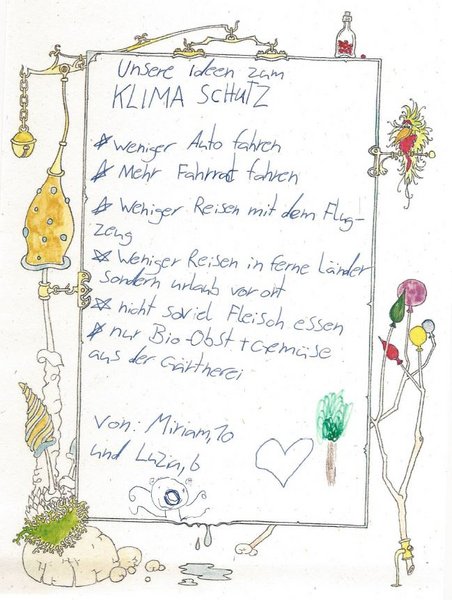 Unsere Ideen zum
KLIMA SCHUTZ
* weniger Auto fahren
* Mehr Fahrrad fahren
* Weniger Reisen mit dem Flug-
zeug
* Weniger Reisen in ferne Länder
sondern urlaub vor ort
* nicht soviel Fleisch essen
* nur Bio-Obst + Gemüse
aus der Gärtnerei
von: Miriam, 10
und Luzia, 6